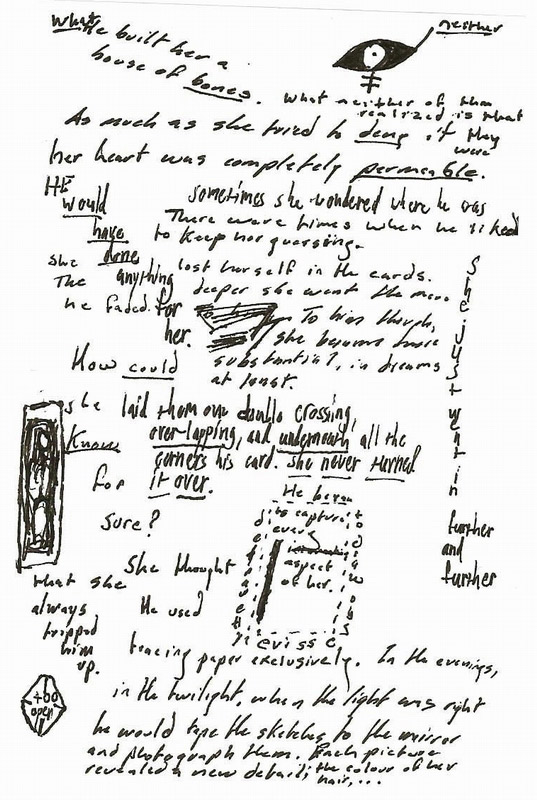 What
He built her a
house of bones.
neither
What neither of them
realized is that
they
were
As much as she tried to deny it
her heart was completely permeable.
HE
would
have
done
anything
for
her.
sometimes she wondered where he was
There were times when he liked
to keep her guessing.
she lost herself in the cards.
The deeper she went the more
he faded.
To him though,
she became more
substantial, in dreams
at least.
She just went in
further
and
further
How could
she
know
for
sure?
laid them out double crossing,
over-lapping, and underneath all the
corners his card. she never turned
it over.
He began
to draw
capture
every
aspect
of her.
She thought
that she
always
tripped
him
up.
He used
tracing paper exclusively. In the evenings,
in the twilight, when the light was right
he would tape the sketches to the mirror
and photograph them. Each picture
revealed a new detail; the colour of her
hair,...
too
open